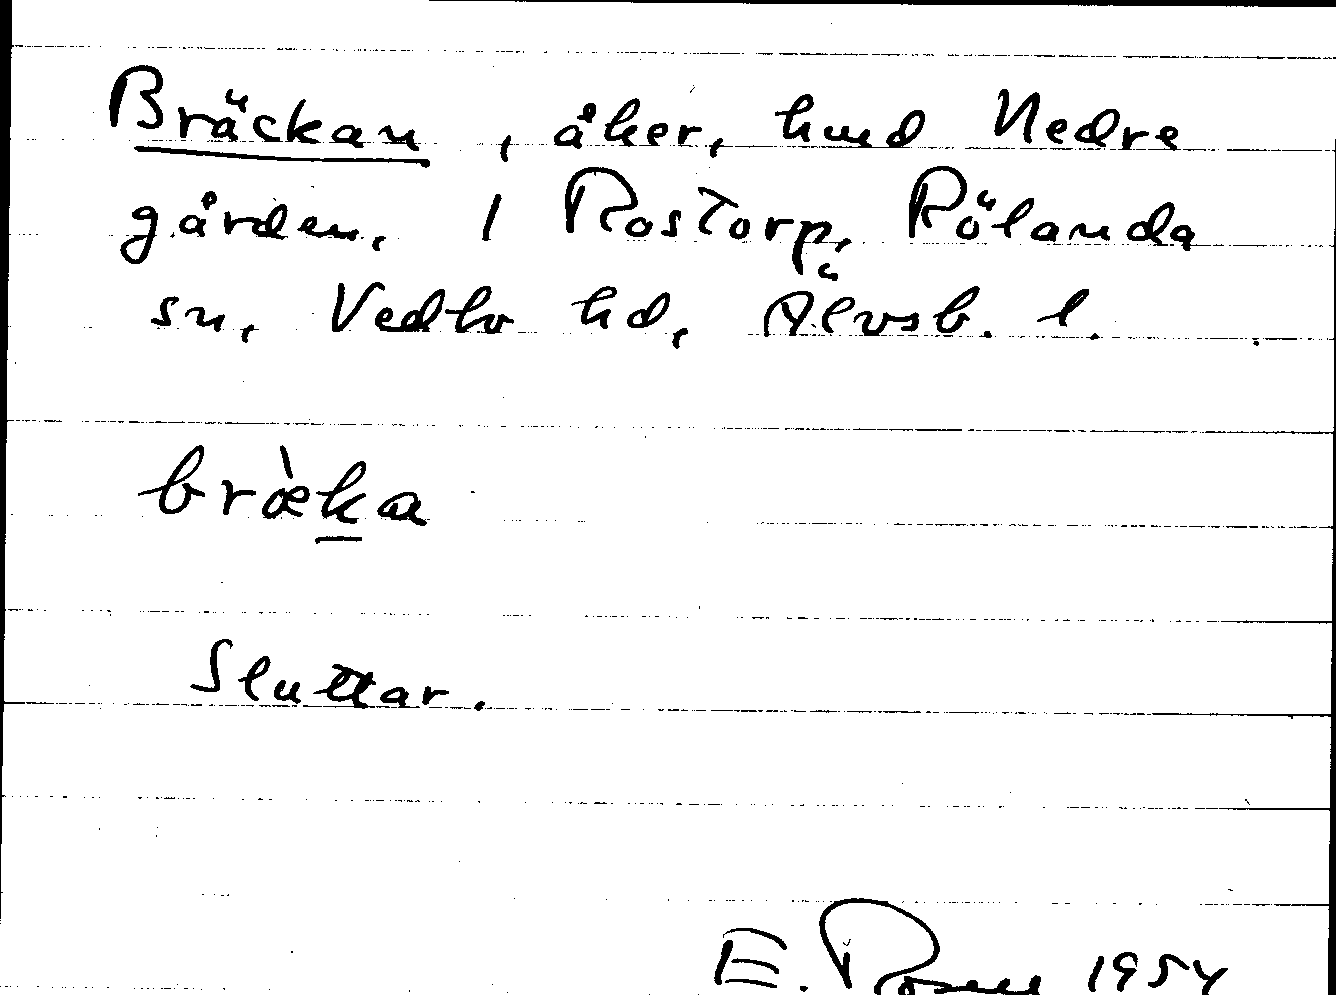 Bräckan, åker, hmd Nedre
gården, 1 Rostorp, Rölanda
sn, Vedbo hd, Älvsb. l.
bræ̀ka
Sluttar.
E. Rosen 1954